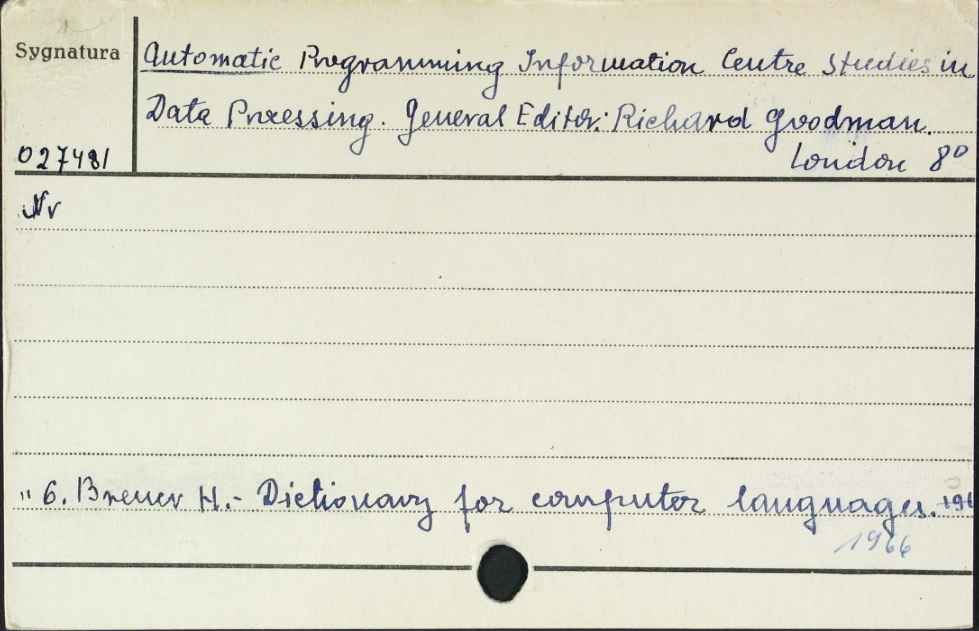 Sygnatura
Automatic Programming Information Centre Studies in
Data Processing. General Editor: Richard Goodman.
027481
London 8°
Nr
" 6. Breuer H.- Dictionary for computor languages. 196
1966